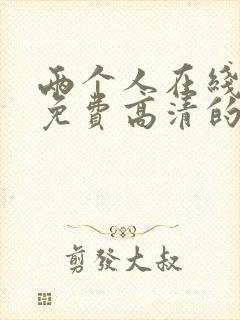 兩个人在綫
免費高清的
剪發大叔